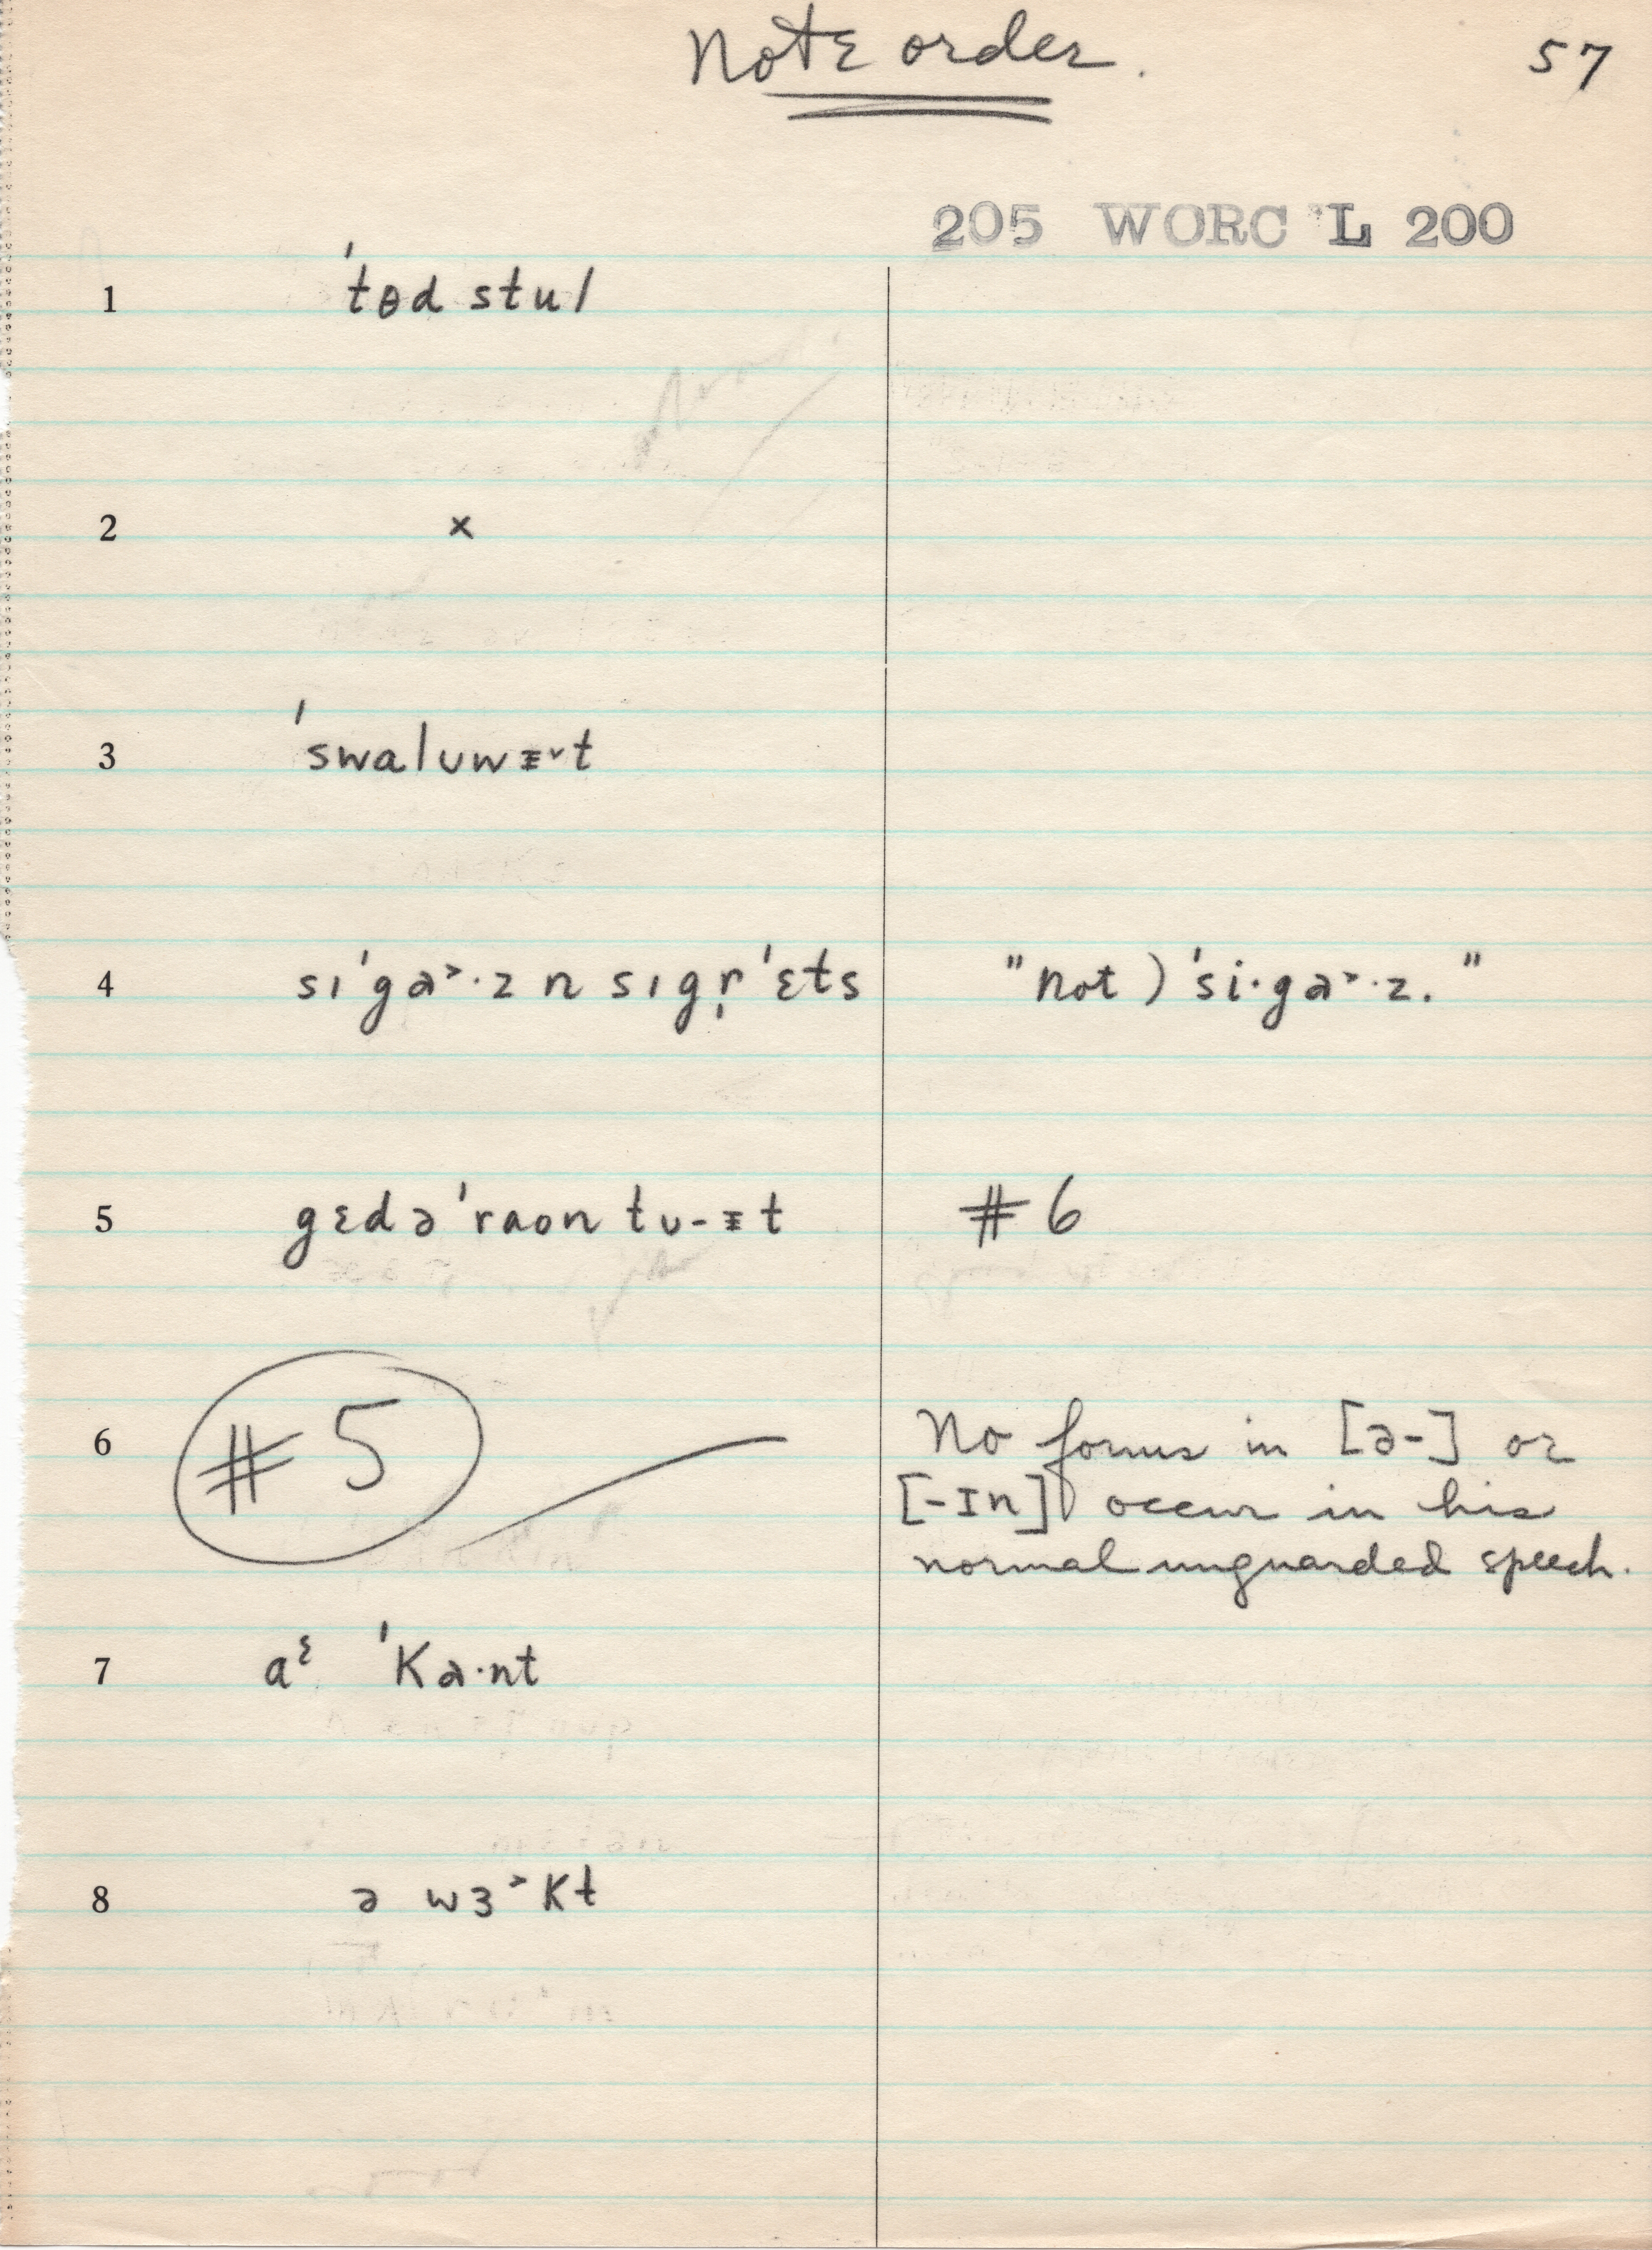 Note order.
57
205 WORC L 200
1 'tɵd stul
2 ×
3 'swaluwᵻ˅t
4 sɪ'ga˃·z n sɪgr̩'ɛts "not) 'si·ga˃·z."
5 gɛdə'raon tu-ᵻt #6
6 #5 No forms in [ə-] or
[-ɪn] occur in his
normal unguarded speech.
7 aᵋ 'ka·nt
8 ə wɜ˃kt